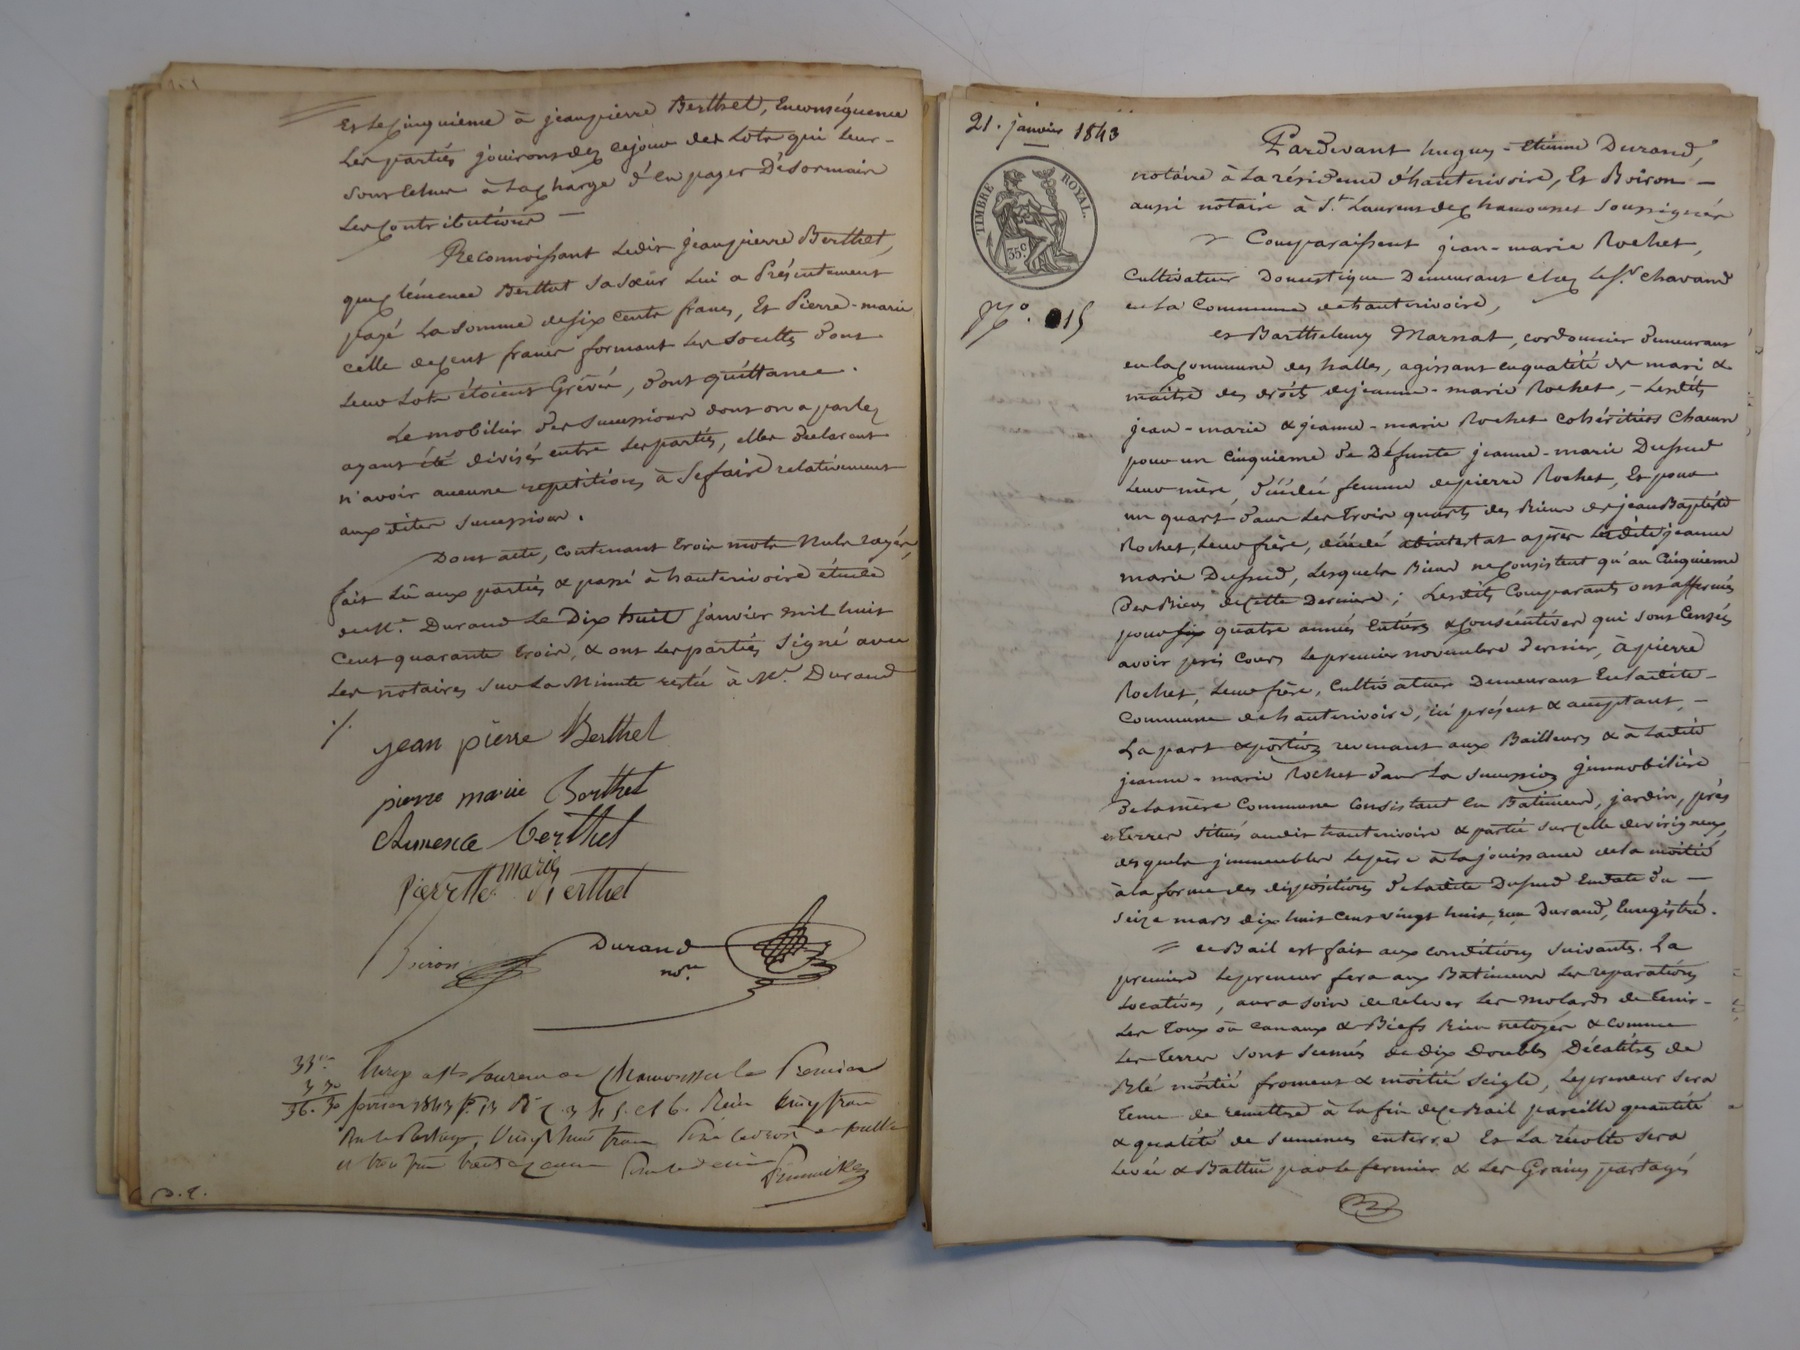 Et le cinquieme à jean pierre Berthet, En conséquence
Les parties jouiront dez cejour des Lots qui leur
sont Echus à La charge d'en payer Désormais
Les contributions —
Reconnoissant Ledit jean pierre Berthet,
que clémence Berthet sa sœur Lui a Présentement
payé La somme de six cents francs, Et Pierre-marie
celle de cent francs formant Les soultes dont
Leurs Lots étoient Grévés, dont quittance.
Le mobilier des successions dont on a parlez
ayant été divisé entre Les parties, elles declarent
n'avoir aucune repetitions à se faire relativement
aux dites successions.
Dont acte, contenant trois mots Nuls rayés,
fait Lû aux parties & passé à hauterivoire étude
de Me. Durand Le Dix huit janvier mil huit
Cent quarante trois, & ont Les parties signé avec
Les notaires sur La Minute restée à Me. Durand
./.
jean pierre Berthet
pierre marie Berthet
Clemence berthet
marie
Pierrette Berthet
Boiron
Durand
nore
33"
3 30
36. 30
Enreg à St Laurent de Chamousset le Premier
février 1843 fo. 13 Ro C. 3 4 5. et 6. Reçu
p. 2.
21. janvier 1843
TIMBRE ROYAL.
35 c
No. 15
Pardevant hugues-Etienne Durand,
notaire à La résidence d'hauterivoire, Et Boiron —
aussi notaire à St. Laurent de chamousset soussignés
Comparaissent jean-marie Rochet,
Cultivateur Domestique Demeurant chez Le Sr. chavand
en La Commune de hauterivoire,
et Barthelemy Marnat, cordonnier demeurant
en la commune des halles, agissant en qualité de mari &
maitre des droits de jeanne-marie Rochet, — Lesdits
jean-marie & jeanne-marie Rochet cohéritiers chacun
pour un cinquieme de Défunte jeanne-marie Dufud
Leur mère, décédée femme de pierre Rochet, Et pour
un quart dans Les trois quarts des Biens de jean Baptiste
Rochet, Leur frère, décédé abintestat après Ladite jeanne
marie Dufud, Lesquels Biens ne consistent qu'au Cinquieme
Des Biens de cette Derniere; Lesdits Comparants ont affermés
pour six quatre années Entieres & consécutives qui sont Censées
avoir pris Cours Le premier novembre dernier, à pierre
Rochet, Leur frère, Cultivateur Demeurant En Ladite —
Commune de hauterivoire, ici présent & acceptant, —
La part & portion revenant aux Bailleurs & à Ladite
jeanne-marie Rochet dans La succession jmmobilière
De La mère Commune Consistant En Batiments, jardin, prés
et Terres situés audit hauterivoire & partie sur celle de virigneux,
desquels jmmeubles Le père à La jouissance de La moitié
à La forme des dispositions de Ladite Dufud En date du —
seize mars dix huit cent vingt huit, reçu Durand, Enregistré.
Ce Bail est fait aux conditions suivantes. La
premiere Le preneur fera aux Batiments Les reparations
Locatives, aura soin de relever Les molards de tenir —
Les Toux ou canaux & Biefs Bien netoyés & comme
Les Terres sont semés de Dix Doubles Décalitres de
Blé moitié froment & moitié seigle, Le preneur sera
tenu de remettre à La fin de ce Bail pareille quantité
& qualité de semences en terre Et La récolte sera
Levée & Battue par Le fermier & Les Grains partagés